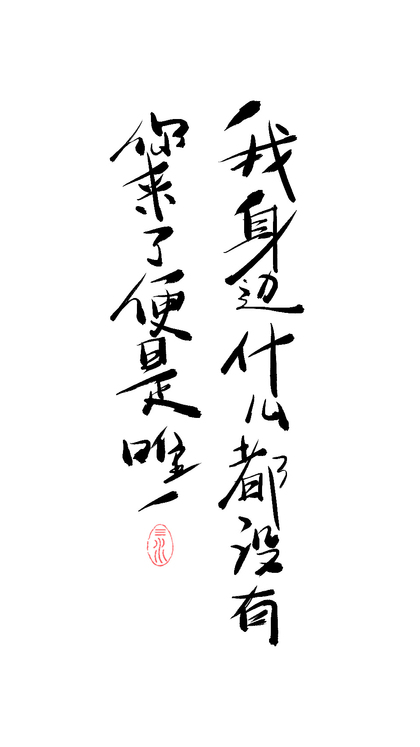 我身边什么都没有
你来了便是唯一
三水